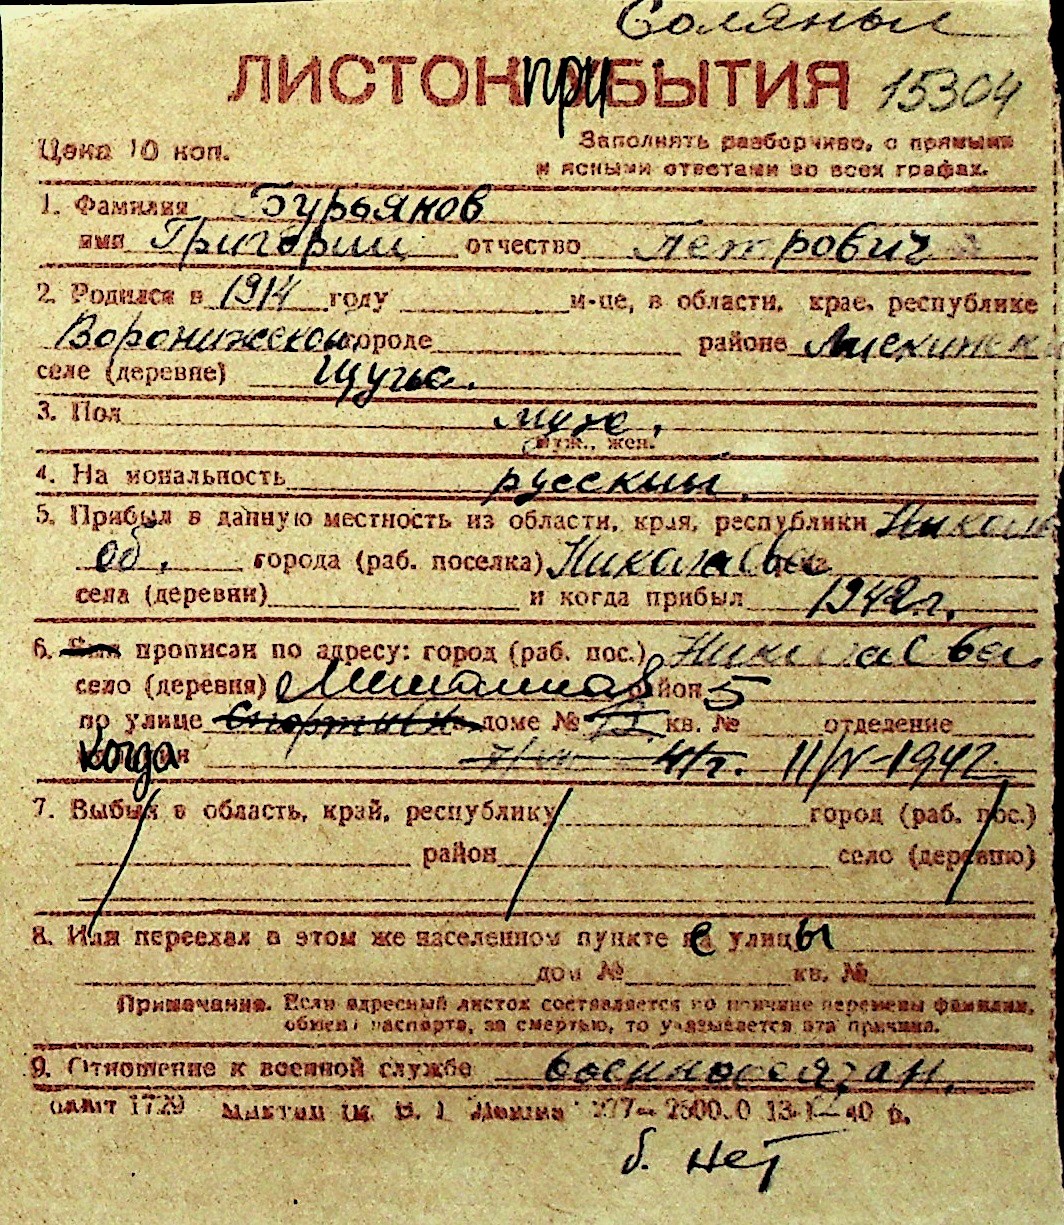 Соляные
ЛИСТОК ПРИБЫТИЯ 15304
Цена 10 коп. Заполнять разборчиво, с прямыми
и ясными ответами во всех графах.
1. Фамилия Бурьянов
имя Григорий отчество Петрович
2. Родился в 1914 году м-це, в области, крае, республике
Воронижской городе районе Лискинск
селе (деревне) Щучье.
3. Пол муж.
муж., жен.
4. Национальность русский.
5. Прибыл в данную местность из области, края, республики Никола
об. города (раб. поселка) Николаев
села (деревни) и когда прибыл 1942 г.
6. Был прописан по адресу: город (раб. пос.) Николаев
село (деревня) район 5
по улице доме № кв. № отделение
Когда 41г. 11/IV-1942
7. Выбыл в область, край, республику город (раб. пос.)
район село (деревню)
8. Или переехал в этом же населенном пункте с улицы
дом № кв. №
Примечание. Если адресный листок составляется по причине перемены фамилии,
обмена паспорта, за смертью, то указывается эта причина.
9. Отношение к военной службе военнообязан.
1729 им. 13 40 г.
б. нет